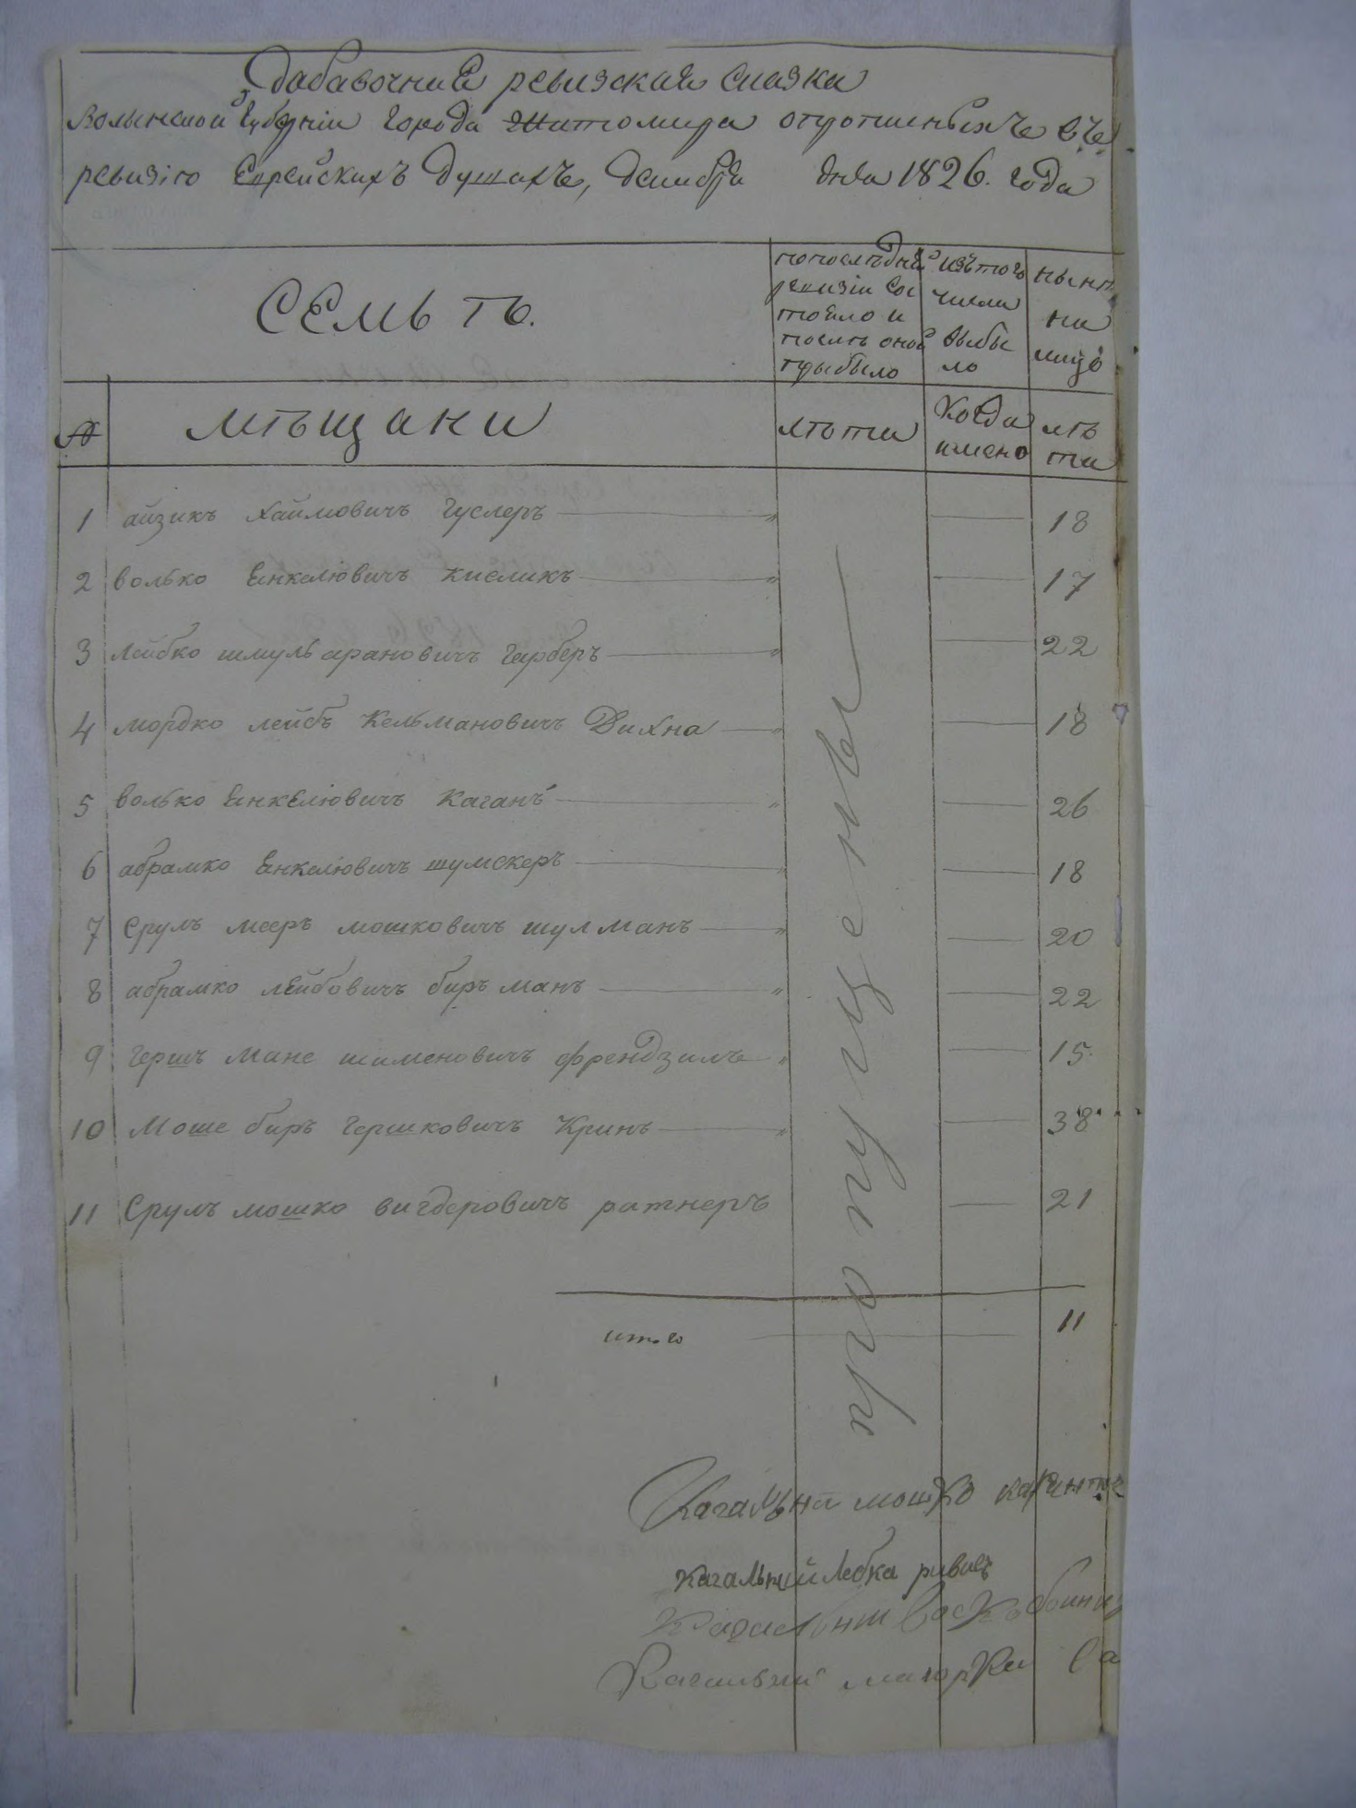 Дабавочная ревизская сказка
Волынской Губерніи Города Житомира опропшенныхъ въ
ревизію Еврейскихъ душахъ, декабря дня 1826. года
СЕмьть.
попоследней ревизіи состояло и после оной прыбыло
изътого числа выбыло
нынѣ на лицо
№ мѣщани
лѣта
Когда имено
лѣта
1 айзикъ Хаимовичъ Гуслеръ — " — 18
2 волько Енкелювичъ Кисликъ — " — 17
3 лейбко шмуль арановичъ Герберъ — " — 22
4 мордко лейбъ Кельмановичъ Дихна — " — 18
5 волько Енкелювичъ Каганъ — " — 26
6 абрамко Енкелювичъ шумскеръ — " — 18
7 Срулъ мееръ мошковичъ шулманъ — " — 20
8 абрамко лейбовичъ биръманъ — " — 22
9 Гершъ Мане шименовичъ френдзилъ — " — 15
10 Моше биръ Гершковичъ Кринъ — " — 38
11 Срулъ мошко вигдеровичъ ратнеръ — 21
пропущены
итого — 11
Кагальни мошко
Кагальний Лебка
Кагальни
Кагальний